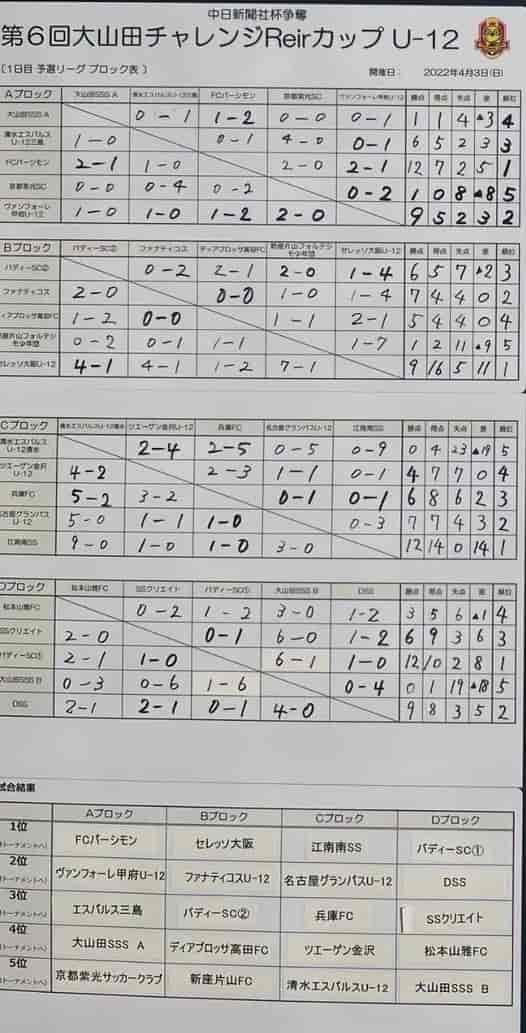 中日新聞社杯争奪
第6回大山田チャレンジReirカップ U-12
〔1日目 予選リーグ ブロック表 〕 開催日： 2022年4月3日(日)
Aブロック 大山田SSS A 清水エスパルスU-12三島 FCパーシモン 京都紫光SC ヴァンフォーレ甲府U-12 勝点 得点 失点 差 順位
大山田SSS A 0-1 1-2 0-0 0-1 1 1 4 ▲3 4
清水エスパルス
U-12三島 1-0 0-1 4-0 0-1 6 5 2 3 3
FCパーシモン 2-1 1-0 2-0 2-1 12 7 2 5 1
京都紫光SC 0-0 0-4 0-2 0-2 1 0 8 ▲8 5
ヴァンフォーレ
甲府U-12 1-0 1-0 1-2 2-0 9 5 2 3 2
Bブロック バディーSC② ファナティコス ディアブロッサ高田FC 新座片山フォルテシモ少年団 セレッソ大阪U-12 勝点 得点 失点 差 順位
バディーSC② 0-2 2-1 2-0 1-4 6 5 7 ▲2 3
ファナティコス 2-0 0-0 1-0 1-4 7 4 4 0 2
ディアブロッサ高田FC 1-2 0-0 1-1 2-1 5 4 4 0 4
新座片山フォルテシ
モ少年団 0-2 0-1 1-1 1-7 1 2 11 ▲9 5
セレッソ大阪U-12 4-1 4-1 1-2 7-1 9 16 5 11 1
Cブロック 清水エスパルスU-12清水 ツエーゲン金沢U-12 兵庫FC 名古屋グランパスU-12 江南南SS 勝点 得点 失点 差 順位
清水エスパルス
U-12清水 2-4 2-5 0-5 0-9 0 4 23 ▲19 5
ツエーゲン金沢
U-12 4-2 2-3 1-1 0-1 4 7 7 0 4
兵庫FC 5-2 3-2 0-1 0-1 6 8 6 2 3
名古屋グランパス
U-12 5-0 1-1 1-0 0-3 7 7 4 3 2
江南南SS 9-0 1-0 1-0 3-0 12 14 0 14 1
Dブロック 松本山雅FC SSクリエイト バディーSC① 大山田SSS B DSS 勝点 得点 失点 差 順位
松本山雅FC 0-2 1-2 3-0 1-2 3 5 6 ▲1 4
SSクリエイト 2-0 0-1 6-0 1-2 6 9 3 6 3
バディーSC① 2-1 1-0 6-1 1-0 12 10 2 8 1
大山田SSS B 0-3 0-6 1-6 0-4 0 1 19 ▲18 5
DSS 2-1 2-1 0-1 4-0 9 8 3 5 2
試合結果
Aブロック Bブロック Cブロック Dブロック
1位 FCパーシモン セレッソ大阪 江南南SS バディーSC①
トーナメントへ)
2位 ヴァンフォーレ甲府U-12 ファナティコスU-12 名古屋グランパスU-12 DSS
トーナメントへ)
3位 エスパルス三島 バディーSC② 兵庫FC SSクリエイト
トーナメントへ)
4位 大山田SSS A ディアブロッサ高田FC ツエーゲン金沢 松本山雅FC
トーナメントへ)
5位 京都紫光サッカークラブ 新座片山FC 清水エスパルスU-12 大山田SSS B
トーナメントへ)